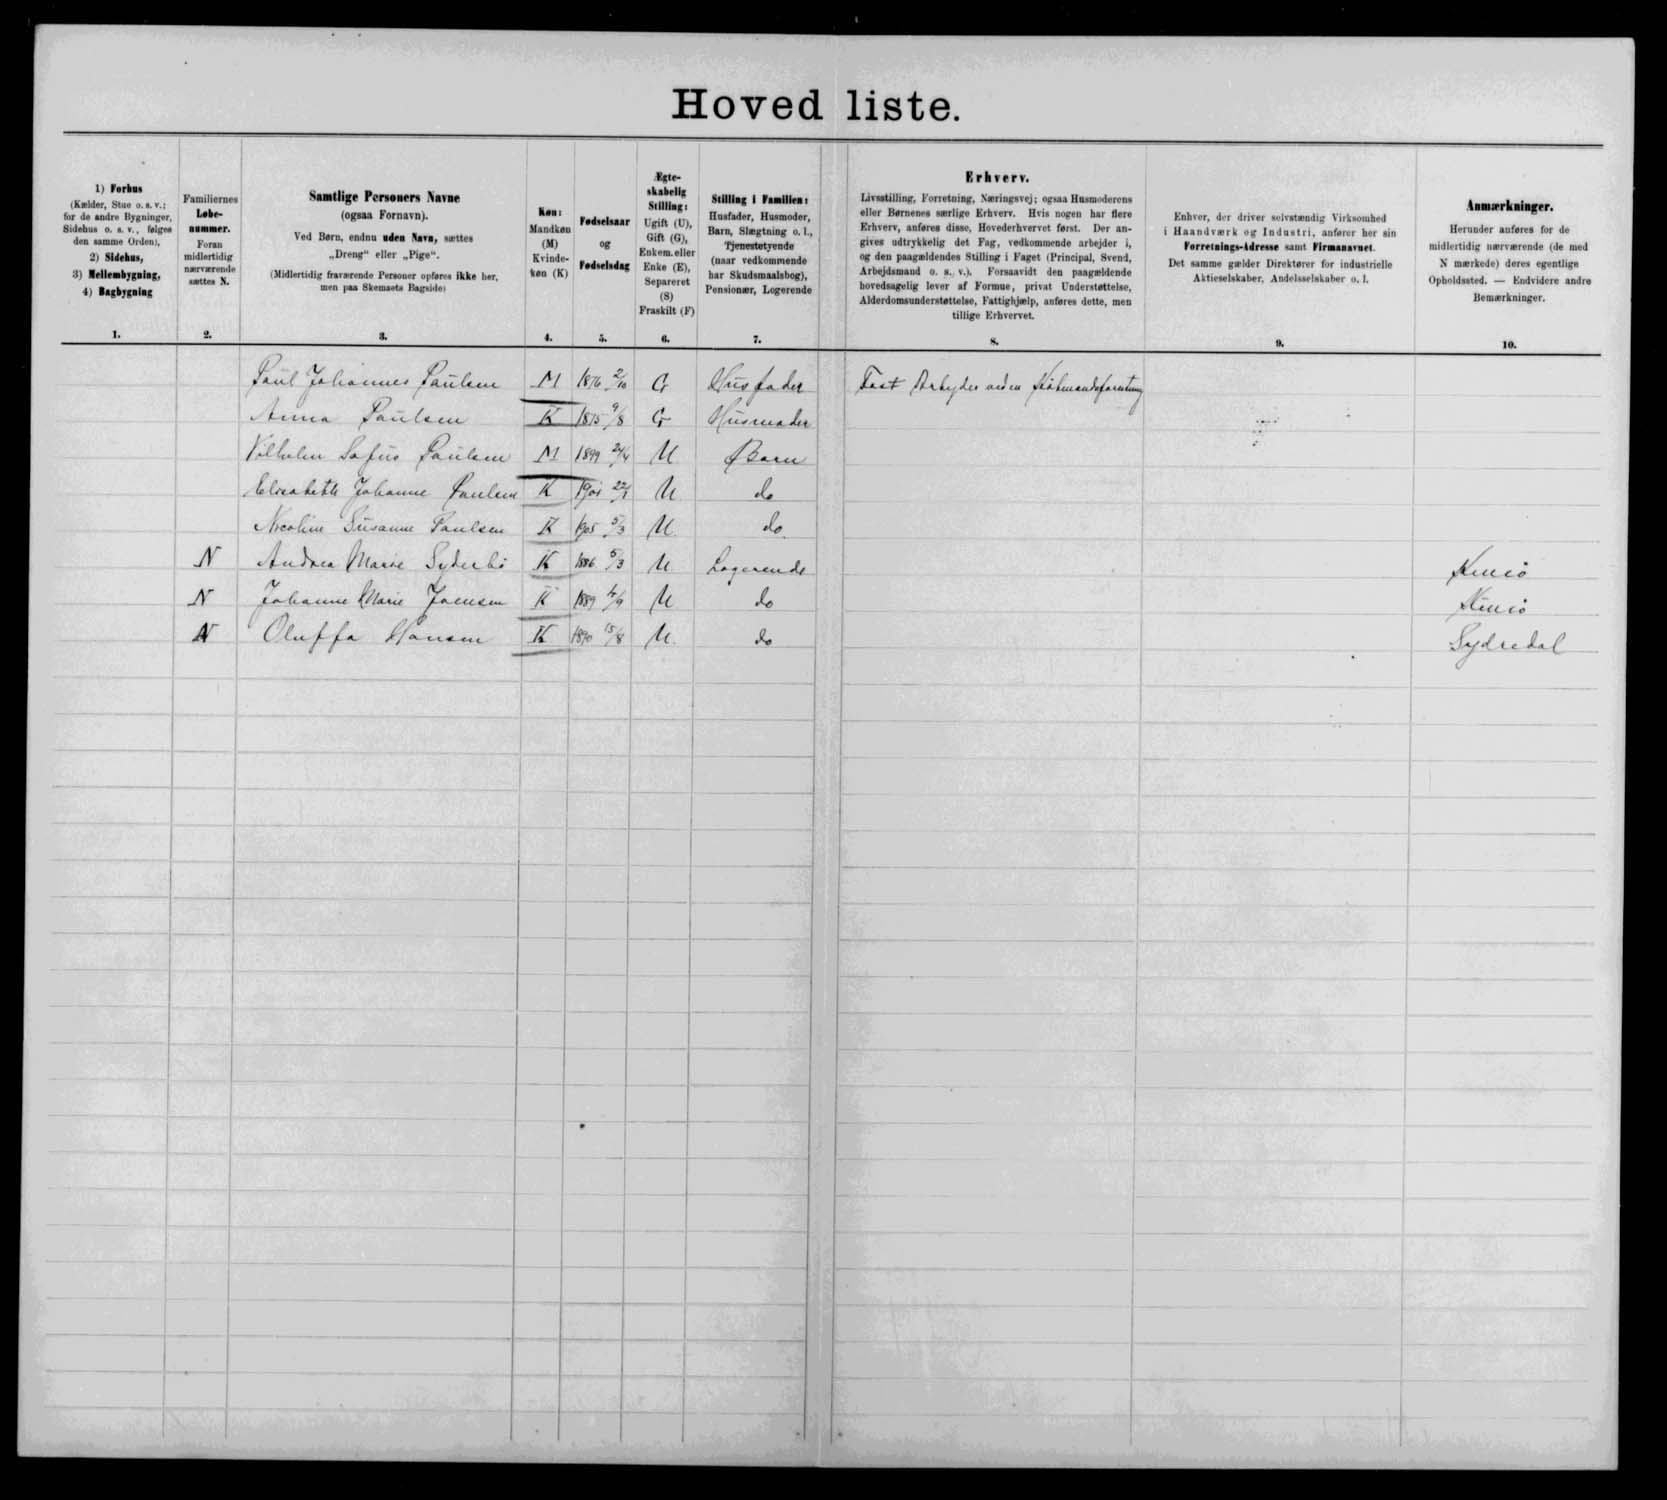 Hovedliste.
1) Forhus
(Kælder, Stue o. s. v.;
for de andre Bygninger,
Sidehus o. s. v., følges
den samme Orden),
2) Sidehus,
3) Mellembygning,
4) Bagbygning
1.
Familiernes
Løbe-
nummer.
Foran
midlertidig
nærværende
sættes N.
2.
Samtlige Personers Navne
(ogsaa Fornavn).
Ved Børn, endnu uden Navn, sættes
„Dreng“ eller „Pige“.
(Midlertidig fraværende Personer opføres ikke her,
men paa Skemaets Bagside)
3.
Køn:
Mandkøn
(M)
Kvinde-
køn (K)
4.
Fødselsaar
og
Fødselsdag
5.
Ægte-
skabelig
Stilling:
Ugift (U),
Gift (G),
Enkem. eller
Enke (E),
Separeret
(S)
Fraskilt (F)
6.
Stilling i Familien:
Husfader, Husmoder,
Barn, Slægtning o. l.,
Tjenestetyende
(naar vedkommende
har Skudsmaalsbog),
Pensionær, Logerende
7.
Erhverv.
Livsstilling, Forretning, Næringsvej; ogsaa Husmoderens
eller Børnenes særlige Erhverv. Hvis nogen har flere
Erhverv, anføres disse, Hovederhvervet først. Der an-
gives udtrykkelig det Fag, vedkommende arbejder i,
og den paagældendes Stilling i Faget (Principal, Svend,
Arbejdsmand o. s. v.). Forsaavidt den paagældende
hovedsagelig lever af Formue, privat Understøttelse,
Alderdomsunderstøttelse, Fattighjælp, anføres dette, men
tillige Erhvervet.
8.
Enhver, der driver selvstændig Virksomhed
i Haandværk og Industri, anfører her sin
Forretnings-Adresse samt Firmanavnet.
Det samme gælder Direktører for industrielle
Aktieselskaber, Andelsselskaber o. l.
9.
Anmærkninger.
Herunder anføres for de
midlertidig nærværende (de med
N mærkede) deres egentlige
Opholdssted. — Endvidere andre
Bemærkninger.
10.
Paul Johannes Paulsen M 1876 2/10 G Husfader Fast Arbejder ved en Købmandsforretning
Anna Paulsen K 1875 9/8 G Husmoder
Vilhelm Sofus Paulsen M 1899 24/4 U Barn
Elisabeth Johanne Paulsen K 1901 22/1 U do
Nicoline Susanne Paulsen K 1905 5/3 U. do.
N Andrea Marie Syderbø K 1886 5/3 U Logerende
N Johanne Marie Joensen K 1889 /9 U do
N Oluffa Hansen K 1890 15/8 U. do Sydredal